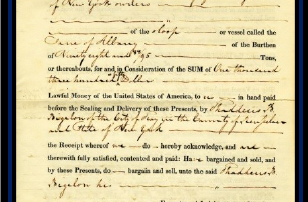 of New York
of the sloop or vessel called the
Jane of Albany of the Burthen
of Ninety eight and 95 Tons,
or thereabouts, for and in Consideration of the SUM of One thousand
three hundred Dollars
Lawful Money of the United States of America, to us in hand paid
before the Sealing and Delivery of these Presents, by Shadderock
Bigelow of the City of Troy in the County of Rensselaer
and State of New York
the Receipt whereof we do hereby acknowledge, and are
therewith fully satisfied, contented and paid: Have bargained and sold, and
by these Presents, do bargain and sell, unto the said Shadderock
Bigelow